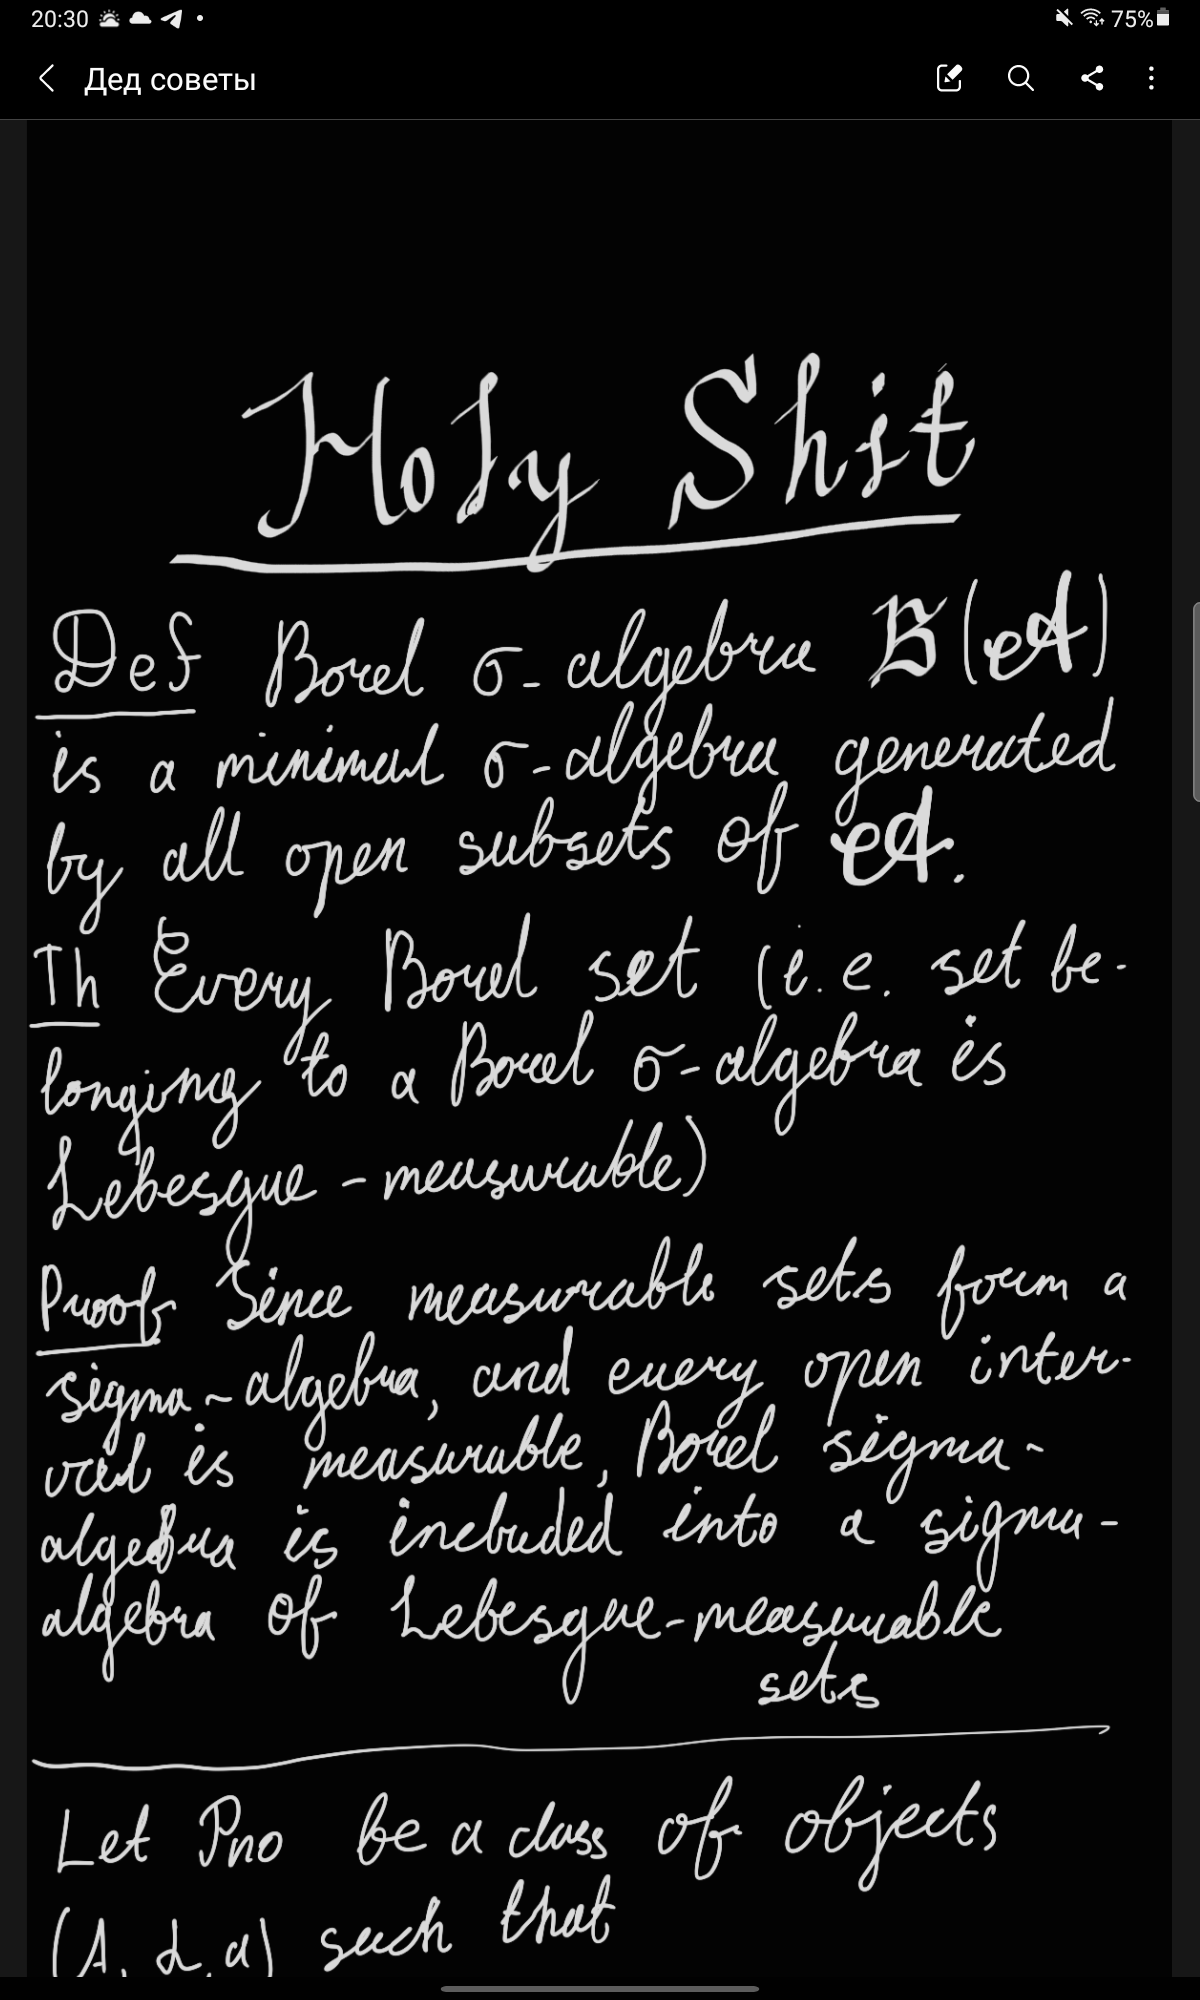 20:30 75%
Дед советы
Holy Shit
Def Borel σ-algebra 𝔅(𝒜)
is a minimal σ-algebra generated
by all open subsets of 𝒜.
Th Every Borel set (i.e. set be-
longing to a Borel σ-algebra is
Lebesgue-measurable)
Proof Since measurable sets form a
sigma-algebra, and every open inter-
val is measurable, Borel sigma-
algebra is included into a sigma-
algebra of Lebesgue-measurable
sets
Let Pno be a class of objects
(A, α, a) such that